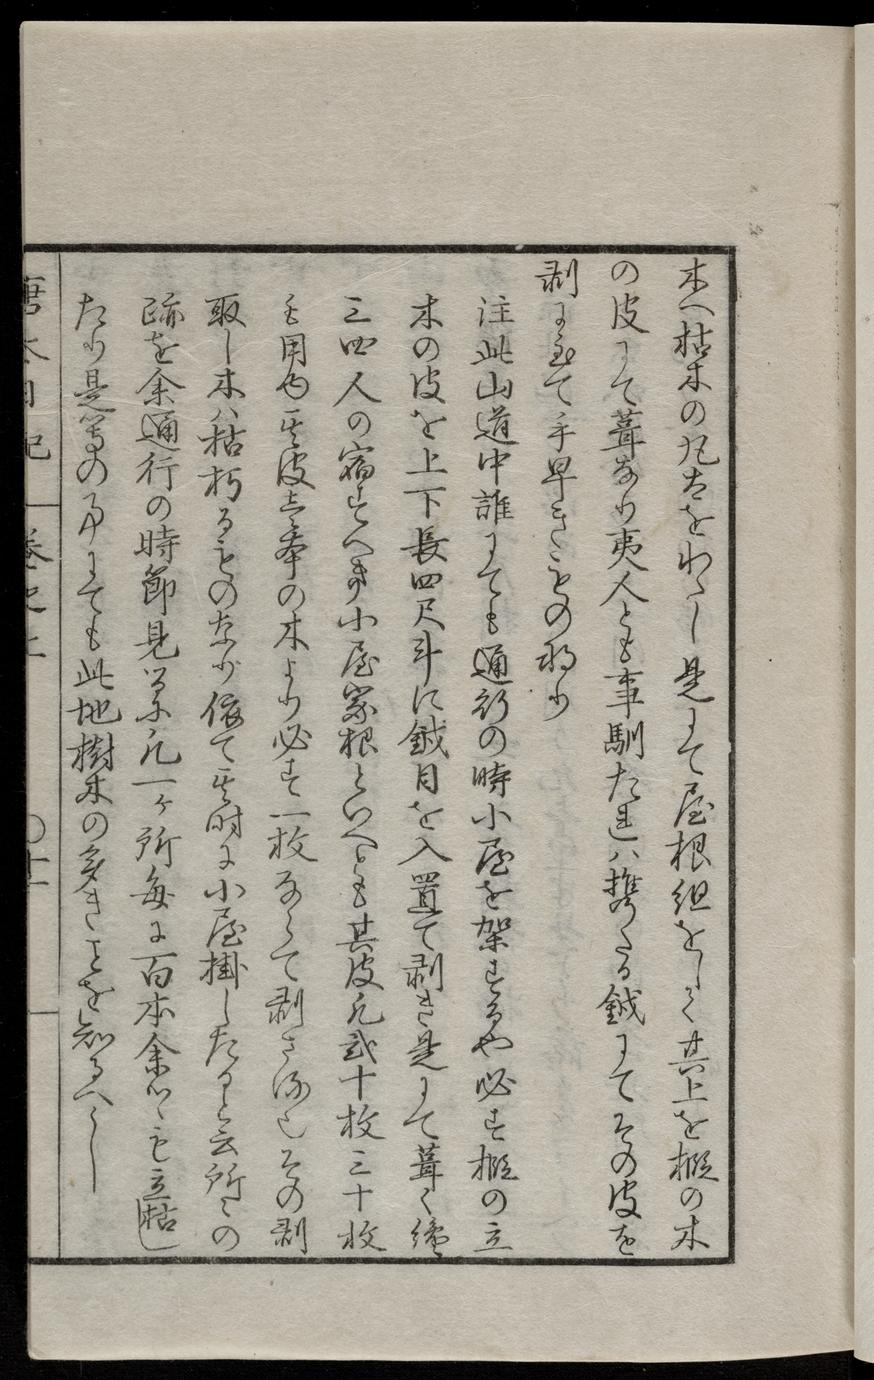 木へ枯木の丸太をわたし是にて屋根組をして其上を椴の木
の皮にて葺なり夷人とも事馴たれハ携たる鉞にてその皮を
剥に至て手早きもの也
注此山道中誰にても通行の時小屋を架するや必す椴の立
木の皮を上下長四尺斗に鉞目を入置て剥き是にて葺く纔
三四人の宿すへき小屋家根といへとも其皮凡弐十枚三十枚
も用ゆ其皮壱本の木より必す一枚ならて剥さる也その剥
取し木ハ枯朽るものなり依て其時に小屋掛したると云所々の
跡を余通行の時節見るに凡一ヶ所毎に百本余つゝも立枯し
たり是等の事にても此地樹木の多きことを知るへし
唐太日記 巻之上 〇十一